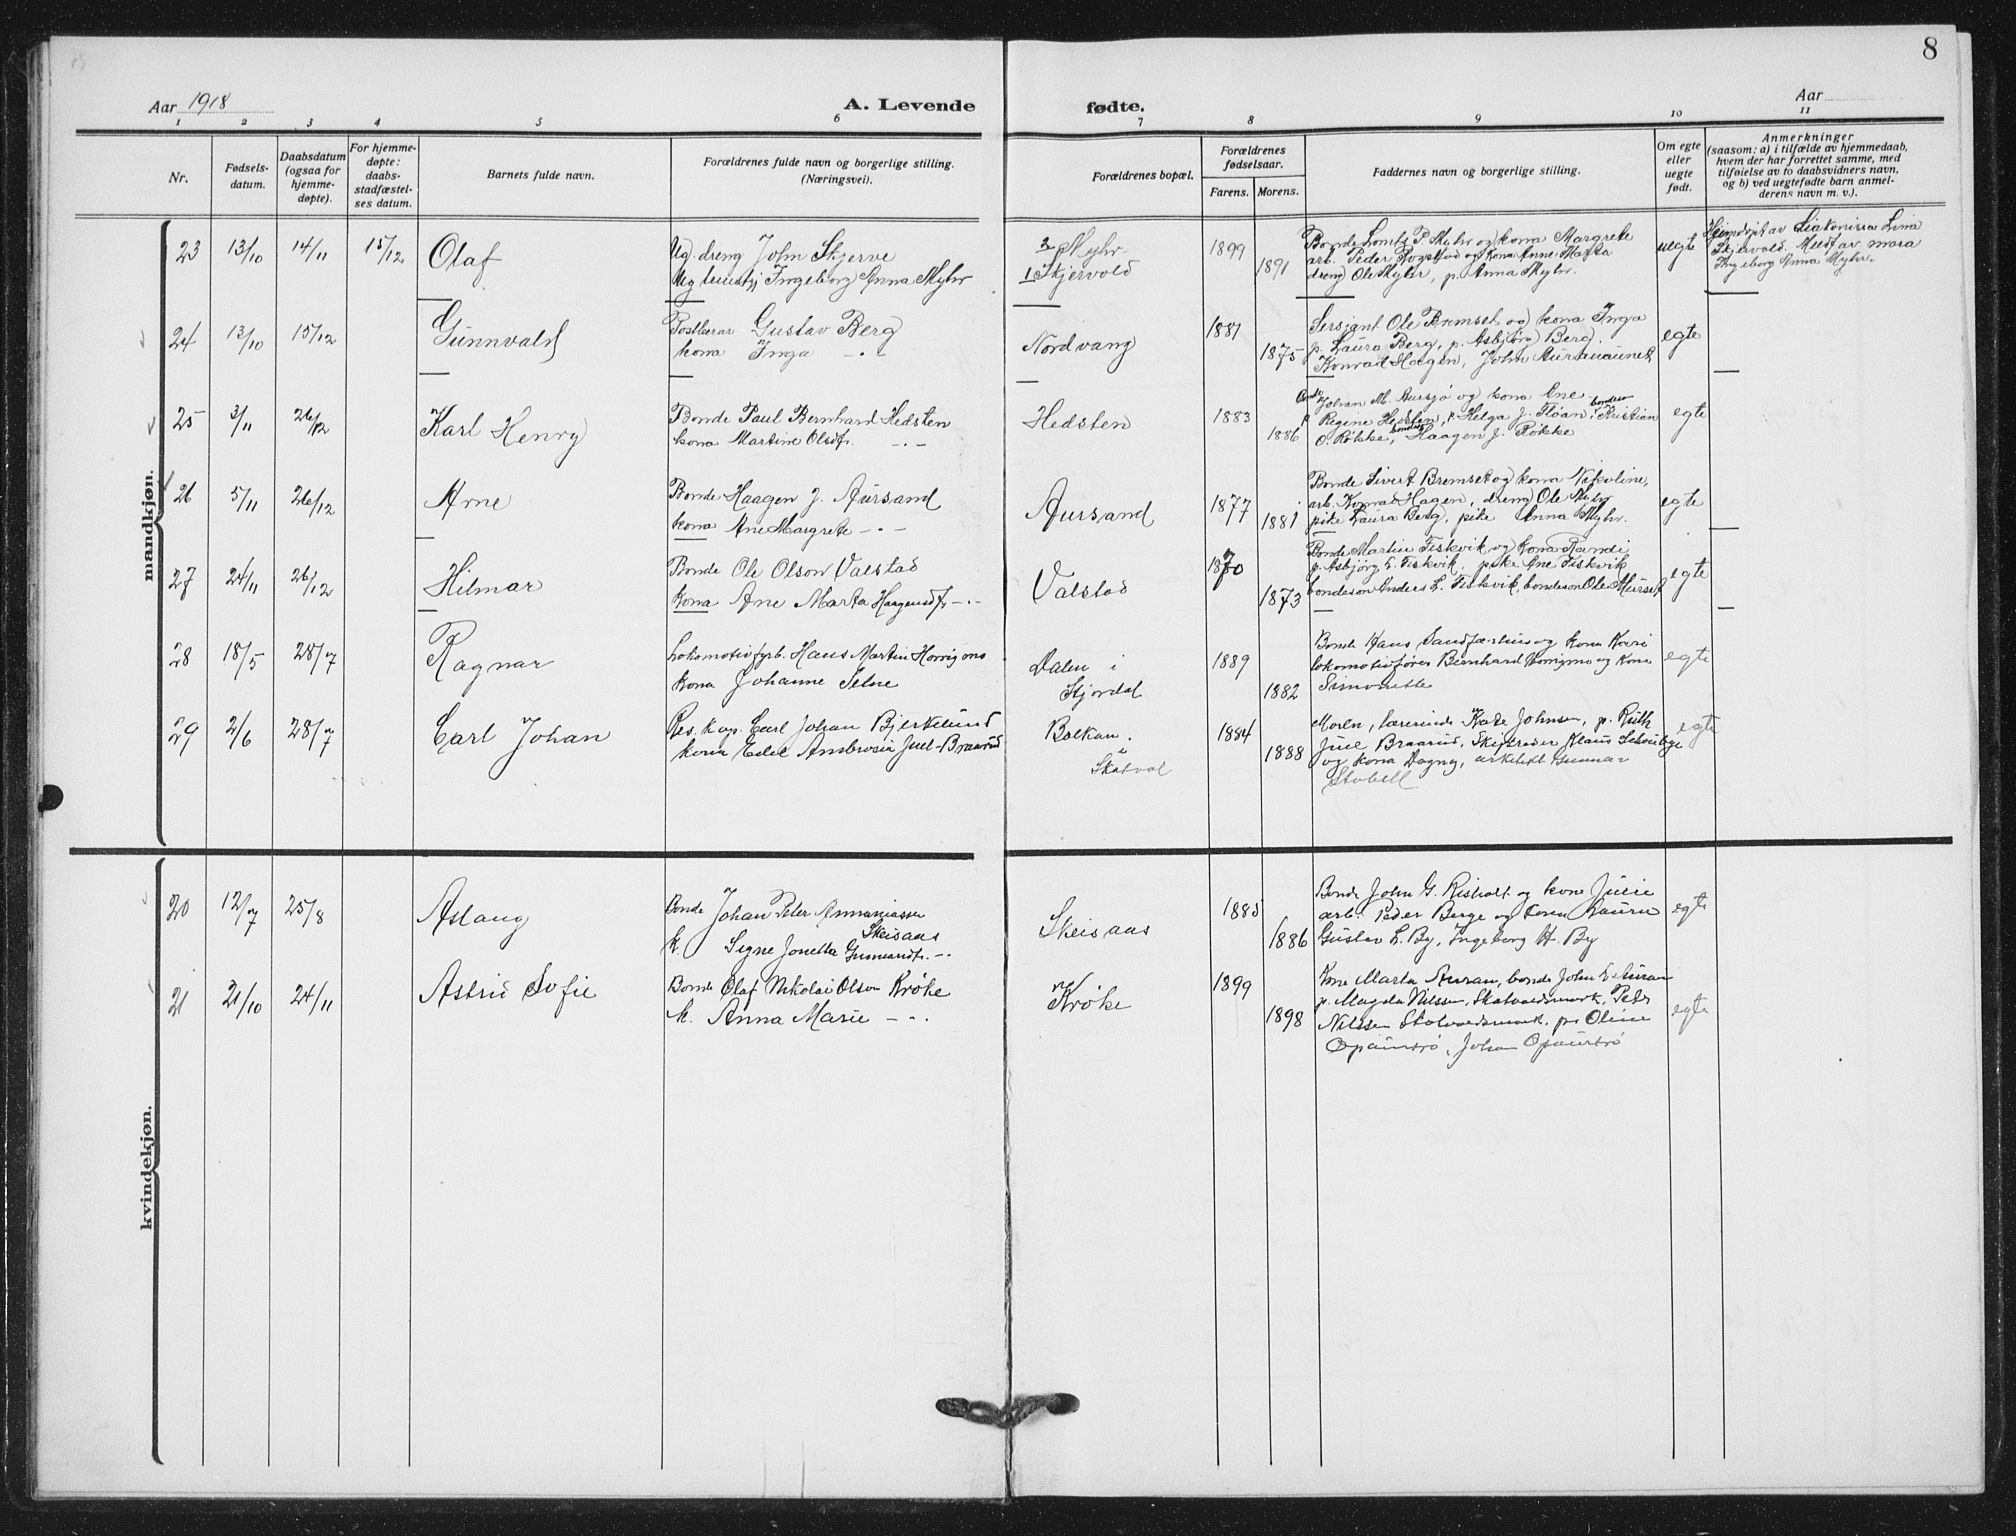 8
Aar 1918
A. Levende
fødte.
Aar
1 2 3 4 5 6 7 8 9 10 11
Nr.
Fødsels-
datum.
Daabsdatum
(ogsaa for
hjemme-
døpte).
For hjemme-
døpte:
daabs-
stadfæstel-
ses datum.
Barnets fulde navn.
Forældrenes fulde navn og borgerlige stilling.
(Næringsvei).
Forældrenes bopæl.
Forældrenes
fødselsaar.
Farens. Morens.
Faddernes navn og borgerlige stilling.
Om egte
eller
uegte
født.
Anmerkninger
(saasom: a) i tilfælde av hjemmedaab,
hvem der har forrettet samme, med
tilføielse av to daabsvidners navn,
og b) ved uegtefødte barn anmel-
derens navn m. v.).
mandkjøn.
23 13/10 14/11 15/12 Olaf
Ug. dreng John Skjerve
Ug Ingeborg Anna Myhr
Myhr
Skjervold
1899
1891
Bonde P Myhr og kona Margrete
arb. Peder og kona Anne Marta
dreng Ole Myhr, p. Anna Myhr.
uegte
Hjemdøpt av Lina
Skjervold. Meldt av mora
Ingeborg Anna Myhr.
24 13/10 15/12 Gunnvald
Gustav Berg
kona Inga - . -
Nordvang
1881
1875
Sersjant Ole Bremset og kona Inga
p. Laura Berg, p. Asbjørg Berg.
Konrad Hagen, John Auranaunet
egte
25 3/11 26/12 Karl Henry
Bonde Paul Bernhard Hedsten
kona Martine Olsdtr. - . -
Hedsten
1883
1886
Johan M. Aursjø og kona Ane
p Regine Hedsten, p. Helga J. Floan, bondes. Kristian
O. Røkke, Haagen J. Røkke
egte
26 5/11 26/12 Arne
Bonde Haagen J. Aursand
kona Ane Margrete - . -
Aursand
1877
1881
Bonde Sivert Bremset og kona Nikoline,
arb. Konrad Hagen, dreng Ole Myhr
pike Laura Berg, pike Anna Myhr.
egte
27 24/11 26/12 Hilmar
Bonde Ole Olson Valstad
kona Ane Marta Haagensdtr. - . -
Valstad
1870
1873
Bonde Martin Fiskvik og kona Randi
p. Asbjørg L. Fiskvik, pike Ane Fiskvik
bondeson Anders L. Fiskvik, bondeson Ole Hurset
egte
28 18/5 28/7 Ragnar
Lokomotivfyrb. Hans Martin
kona Johanne Selne
Dalen i
Stjørdal
1889
1882
Bonde Hans og kona Kari
lokomotivfører Bernhard og kona
Simonette
egte
29 2/6 28/7 Carl Johan
Res. kap. Carl Johan Bjerkelund
kona Edel Ambrosia Juel-Braarud
Balkan.
i
Skatval
1884
1888
Moren, lærerinde Kate Johnsen, p. Ruth
Juel Braarud, Skipsreder Klaus
og kona Dagny, arkitekt Gunnar
Stabell
egte
kvindekjøn.
20 12/7 25/8 Aslaug
Bonde Johan Peter Annaniassen
Skeisaas
k. Signe Jonetta Gunnarsdtr. - . -
Skeisaas
1885
1886
Bonde John G. Risholt og kone Julie
arb. Peder Berge og kona Laura
Gustav L. By, Ingeborg H. By
egte
21 21/10 24/11 Astrid Sofie
Bonde Olaf Nikolai Olsen Krøke
k. Anna Marie - . -
Krøke
1899
1898
Kone Marta Auran, bonde John L Auran
p. Magda Nilssen, Skatvoldsmark, Peter
Nilssen Skatvoldsmark, p. Oline
Opaunvrø, Johan Opaunvrø
egte